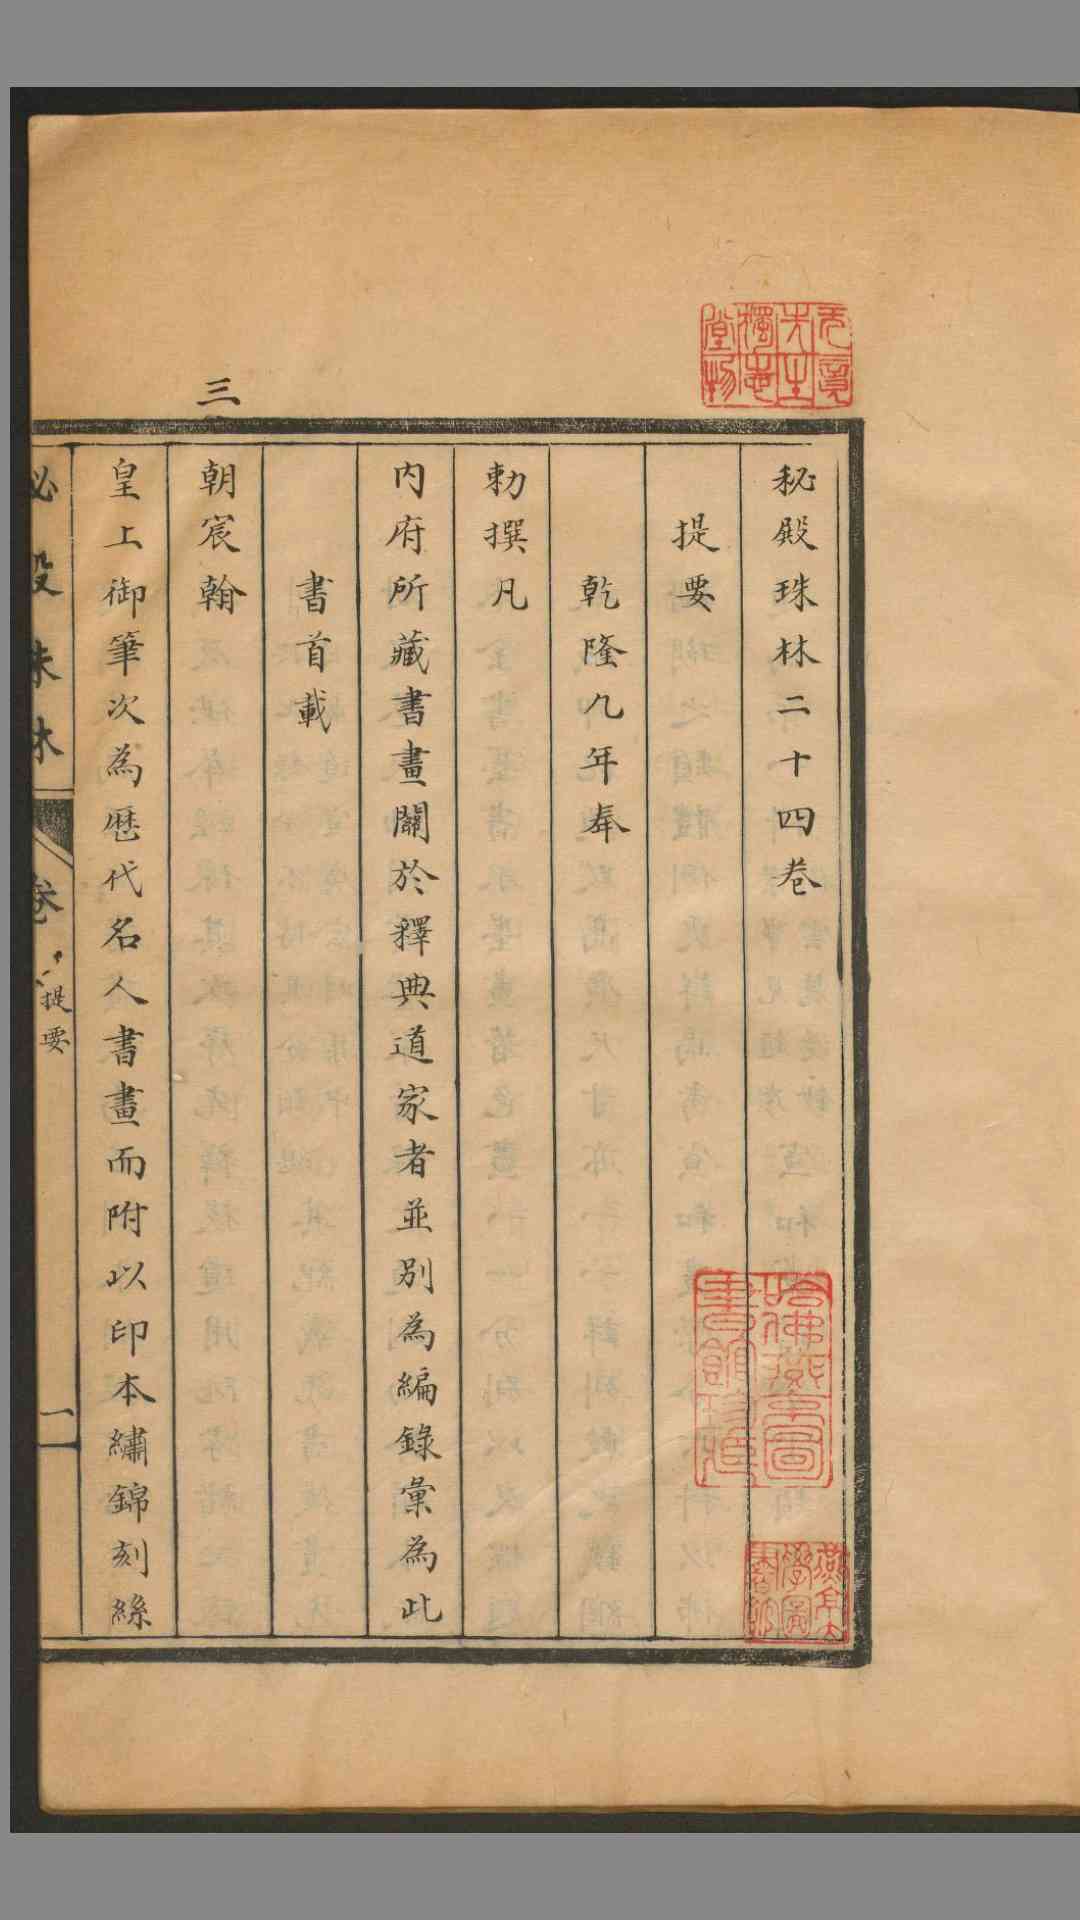 秘殿珠林二十四卷
提要
乾隆九年奉
勅撰凡
內府所藏書畫關於釋典道家者並別為編錄彙為此
書首載
三
朝宸翰
皇上御筆次為歷代名人書畫而附以印本繡錦刻絲
秘殿珠林
卷
提要
一
哈佛燕京圖書館珍藏
燕京大學圖書館